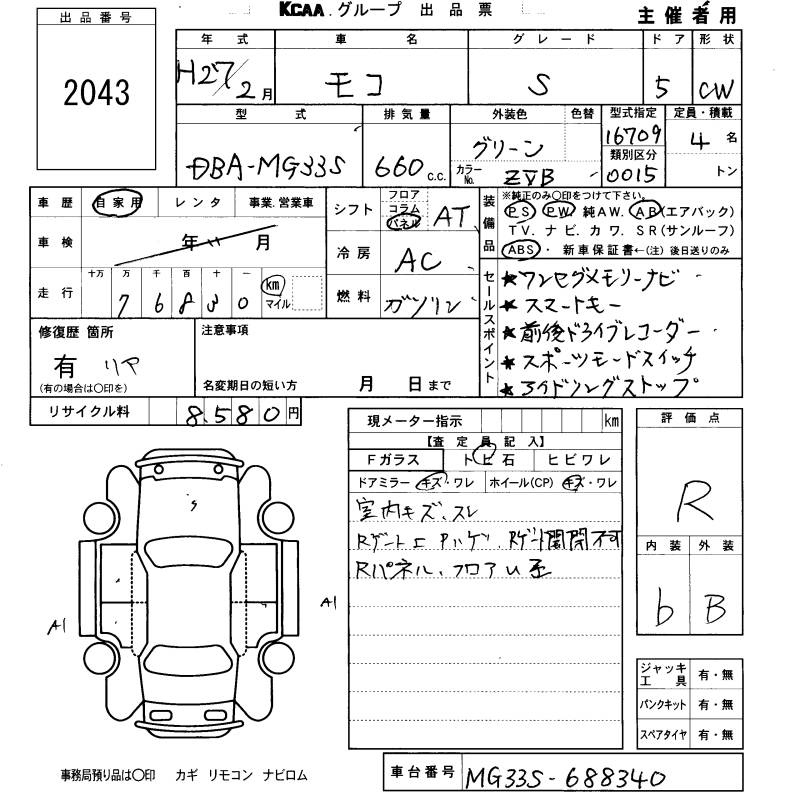 KCAA.グループ 出品票
主催者用
出品番号
2043
年式 車名 グレード ドア 形状
H27/2月 モコ S 5 CW
型式 排気量 外装色 色替 型式指定 定員・積載
DBA-MG33S 660 c.c. グリーン 16709 4名
カラーNo. ZVB 類別区分 0015 トン
車歴 自家用 レンタ 事業.営業車
車検 年 月
走行 十万 万 千 百 十 一
76830 km マイル
シフト フロア コラム パネル AT
冷房 AC
燃料 ガソリン
装備品 ※純正のみ○印をつけて下さい。
PS PW 純AW. AB(エアバック)
TV. ナビ. カワ. SR(サンルーフ)
ABS ・ 新車保証書←(注) 後日送りのみ
セールスポイント
★ワンセグメモリーナビ
★スマートキー
★前後ドライブレコーダー
★スポーツモードスイッチ
★アイドリングストップ
修復歴 箇所
有 リヤ
(有の場合は○印を)
注意事項
名変期日の短い方 月 日まで
リサイクル料 8.580円
現メーター指示 km
【査定員記入】
Fガラス トビ石 ヒビワレ
ドアミラー キズ・ワレ ホイール(CP) キズ・ワレ
室内キズ、スレ
Rゲート
Rゲート開閉不可
Rパネル、フロアU歪
評価点
R
内装 外装
b B
A1
A1
ジャッキ工具 有・無
パンクキット 有・無
スペアタイヤ 有・無
事務局預り品は○印 カギ リモコン ナビロム
車台番号 MG33S-688340